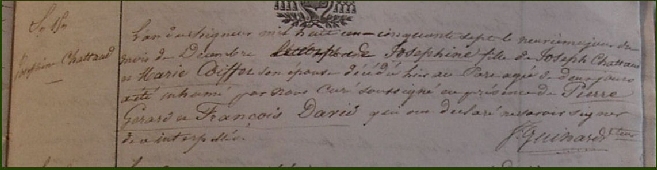 Sre Vre
Josephine Chattard
L'an du Seigneur mil huit cent cinquante sept le neuvieme jour du
mois de Decembre Josephine fille de Joseph Chattard
et Marie Coiffet son épouse décédée hier au Parc agée de douze jours
a été inhumée par nous Curé soussigné en présence de Pierre
Gerard et François Darié qui ont declaré ne savoir signer
de ce interpellés.
J. Guinard